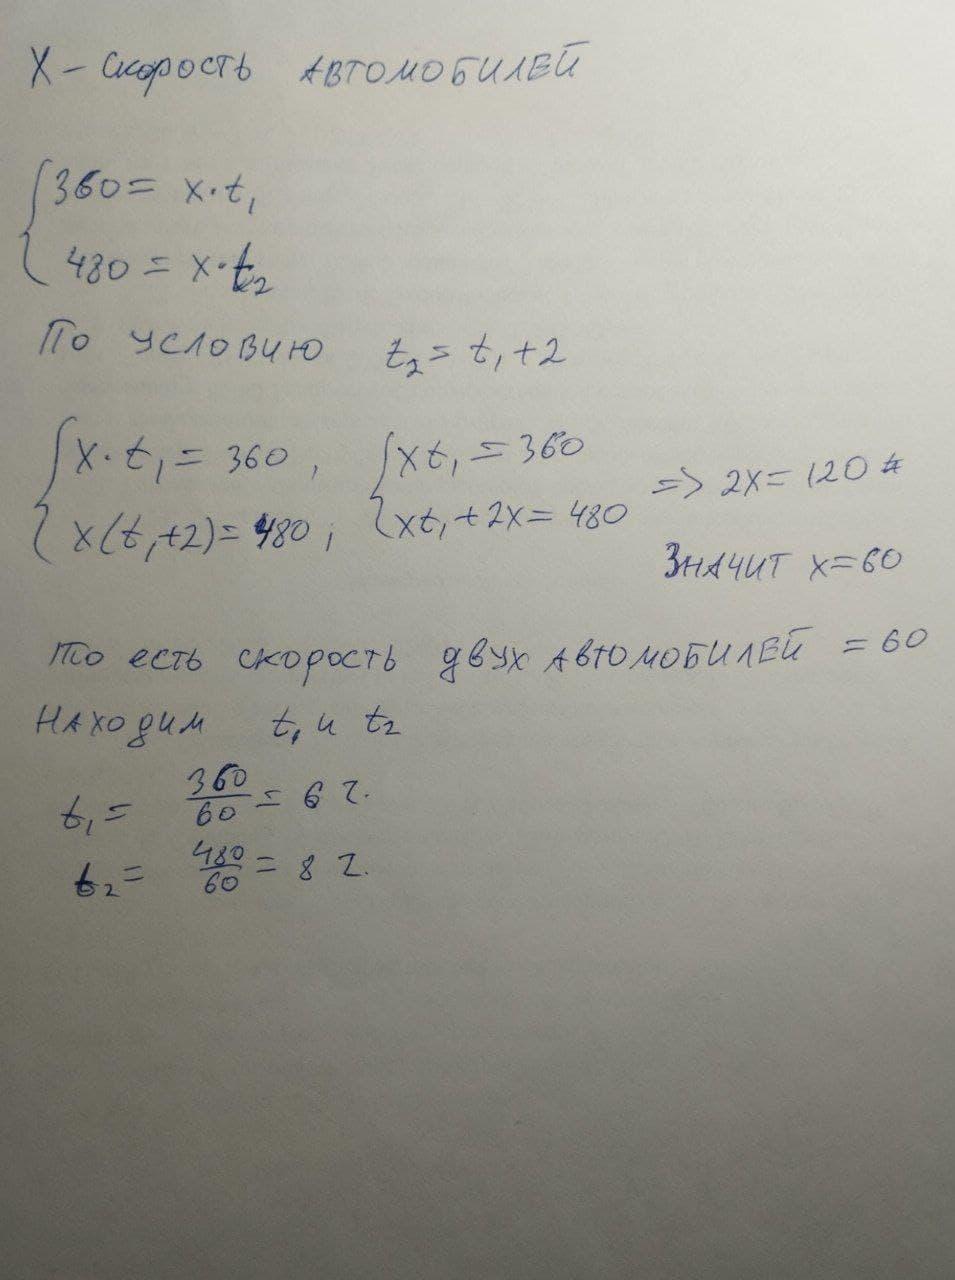 X – скорость автомобилей
360 = x·t₁
480 = x·t₂
По условию t₂ = t₁ + 2
x·t₁ = 360, xt₁ = 360
x(t₁+2) = 480; xt₁ + 2x = 480 => 2x = 120
Значит x = 60
то есть скорость двух автомобилей = 60
Находим t₁ и t₂
t₁ = 360/60 = 6 ч.
t₂ = 480/60 = 8 ч.